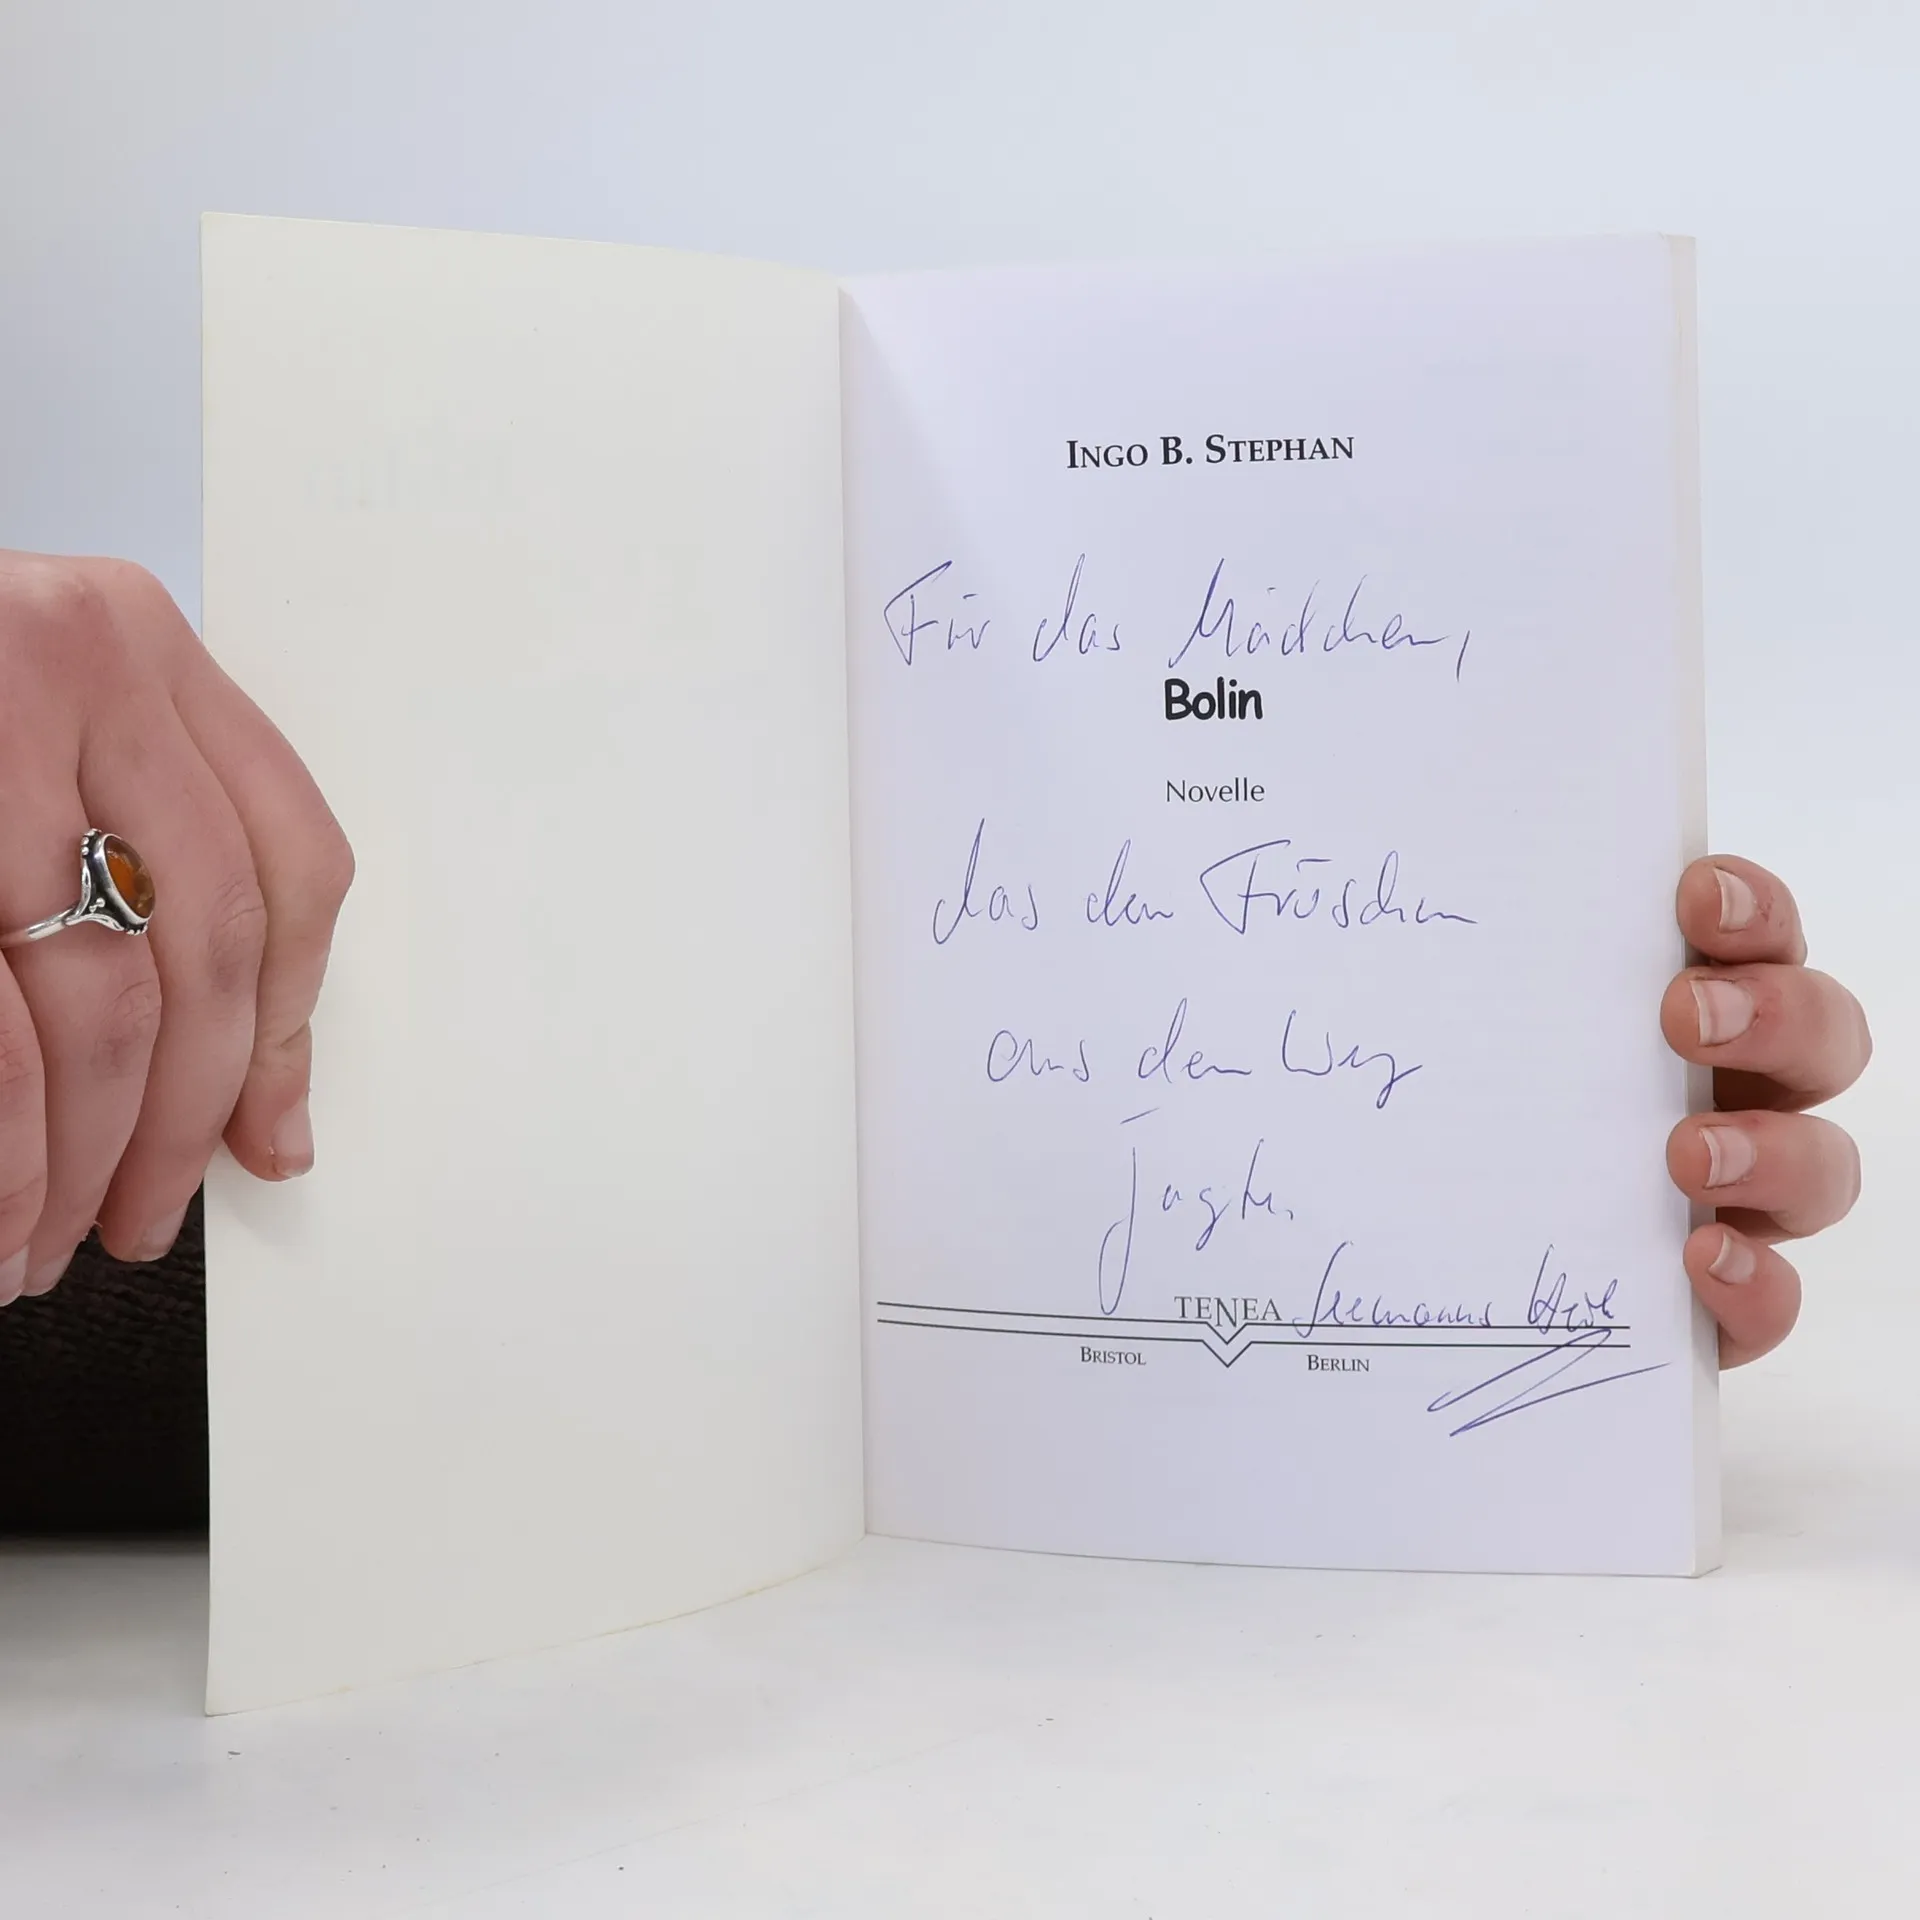 INGO B. STEPHAN
Für das Mädchen,
Bolin
Novelle
das den Fröschen
aus dem Weg
jagte.
TENEA
BRISTOL BERLIN